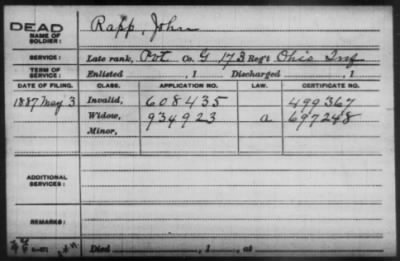 DEAD
NAME OF SOLDIER: Rapp, John
SERVICE: Late rank, Pvt Co. G 173 Reg't Ohio Inf
TERM OF SERVICE: Enlisted , 1 Discharged , 1
DATE OF FILING. CLASS. APPLICATION NO. LAW. CERTIFICATE NO.
1887 May 3 Invalid, 608435 499367
Widow, 934923 a 697248
Minor,
ADDITIONAL SERVICES:
REMARKS:
Died , 1 , at